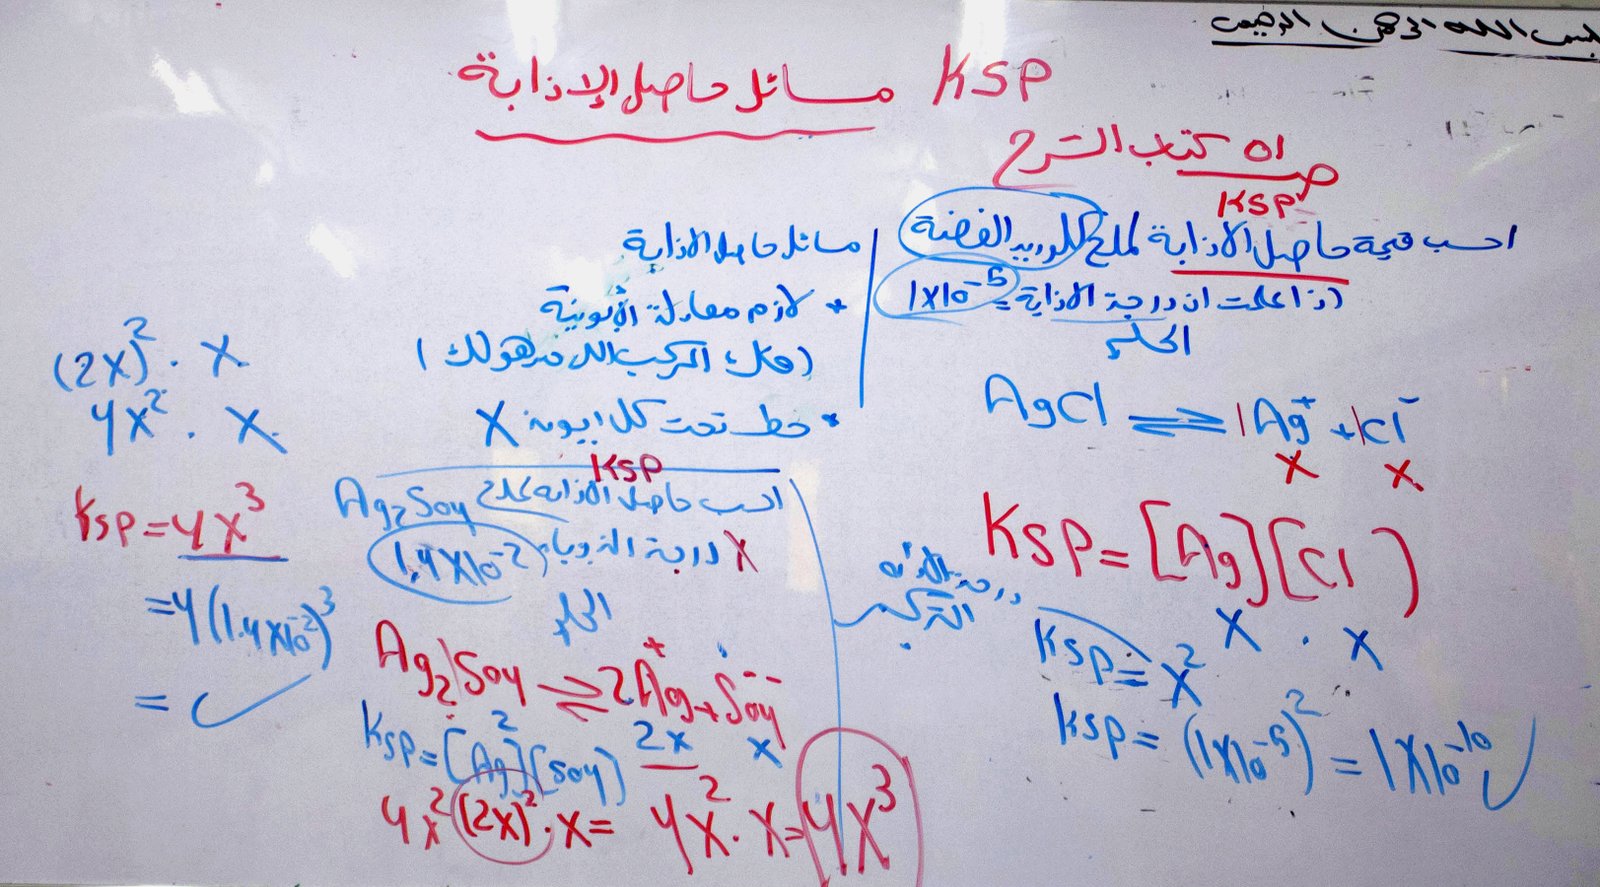 بسم الله الرحمن الرحيم
مسائل حاصل الإذابة KSP
ص ٥١ كتاب الشرح
KSP
احسب قيمة حاصل الاذابة لملح كلوريد الفضة
اذا علمت ان درجة الاذابة = 1x10⁻⁵
الحل
AgCl ⇌ 1Ag⁺ + 1Cl⁻
X X
KSP = [Ag][Cl]
X . X
KSP = X²
KSP = (1x10⁻⁵)² = 1x10⁻¹⁰ ✓
درجة الاذابة
التركيز
مسائل حاصل الاذابة
* لازم معادلة الأيونية
(فك المركب اللى مدهولك)
* حط تحت كل ايون X
KSP
احسب حاصل الاذابة لملح Ag₂SO4
X درجة الذوبان 1.4x10⁻²
الحل
Ag₂SO4 ⇌ 2Ag⁺ + SO4⁻⁻
2x x
KSP = [Ag]²[SO4]
4x² (2x)² . x = 4x² . x = 4x³
(2x)² . x
4x² . x
KSP = 4x³
= 4(1.4x10⁻²)³
= ✓